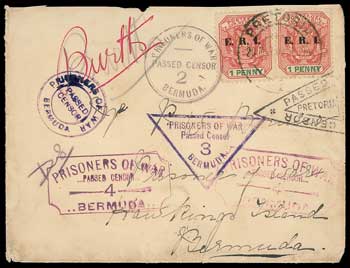 PRISONERS OF WAR
PASSED CENSOR
2
BERMUDA.
E.R.I.
1 PENNY
E.R.I.
1 PENNY
PRETORIA
PRISONERS OF WAR
PASSED
CENSOR
BERMUDA
PASSED
PRETORIA
CENSOR
PRISONERS OF WAR
Passed Censor
3
BERMUDA
PRISONERS OF WAR
PASSED CENSOR
4
BERMUDA.
PRISONERS OF WAR
Prisoner of
Hawkins Island
Bermuda